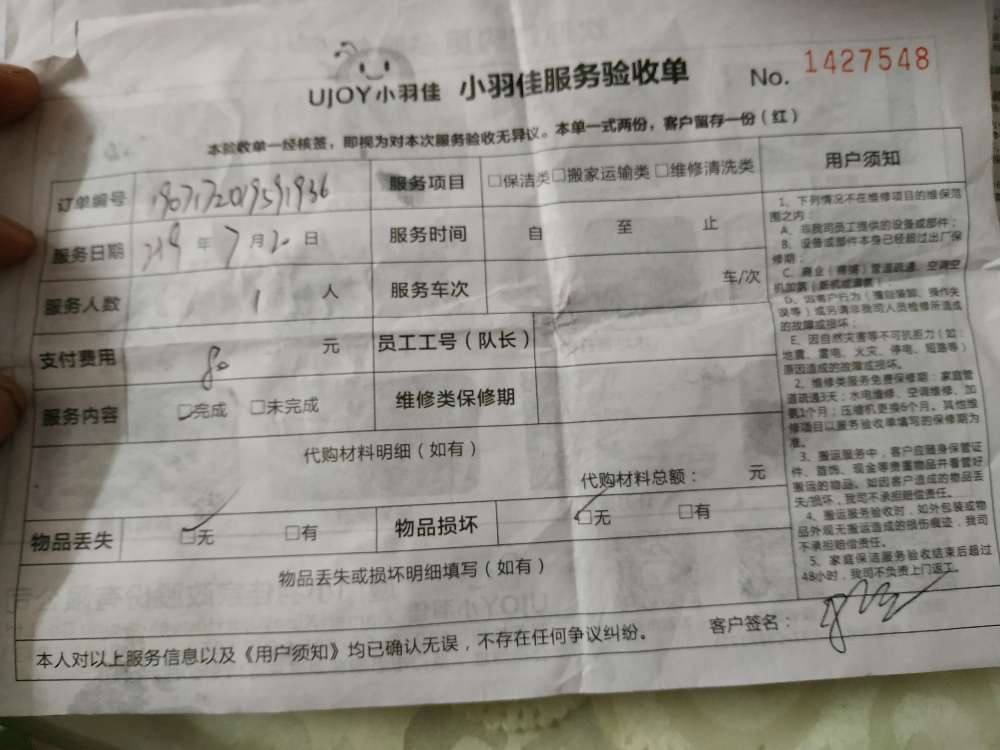 UJOY小羽佳 小羽佳服务验收单 No. 1427548
本验收单一经核签，即视为对本次服务验收无异议。本单一式两份，客户留存一份（红）
订单编号 服务项目 □保洁类□搬家运输类□维修清洗类
服务日期 年 7 月 20 日 服务时间 自 至 止
服务人数 1 人 服务车次 车/次
支付费用 80 元 员工工号（队长）
服务内容 □完成 □未完成 维修类保修期
代购材料明细（如有）
代购材料总额： 元
物品丢失 □无 □有 物品损坏 □无 □有
物品丢失或损坏明细填写（如有）
本人对以上服务信息以及《用户须知》均已确认无误，不存在任何争议纠纷。 客户签名：
用户须知
1、下列情况不在维修项目的维保范
围之内：
A、非我司员工提供的设备或部件；
B、设备或部件本身已经超过出厂保
修期；
C、商业（商铺）管道疏通、空调空
机加氟（新机或清氟）；
D、因客户行为（擅自装卸、操作失
误等）或另请非我司人员检修所造成
的故障或损坏；
E、因自然灾害等不可抗拒力（如：
地震、雷电、火灾、停电、短路等）
原因造成的故障或损坏。
2、维修类服务免费保修期：家庭管
道疏通3天；水电维修、空调维修、加
氨1个月；压缩机更换6个月。其他维
修项目以服务验收单填写的保修期为
准。
3、搬运服务中，客户应随身保管证
件、首饰、现金等贵重物品并看管好
搬运的物品。如因客户造成的物品丢
失/损坏，我司不承担赔偿责任。
4、搬运服务验收时，如外包装或物
品外观无搬运造成的损伤痕迹，我司
不承担赔偿责任。
5、家庭保洁服务验收结束后超过
48小时，我司不负责上门返工。